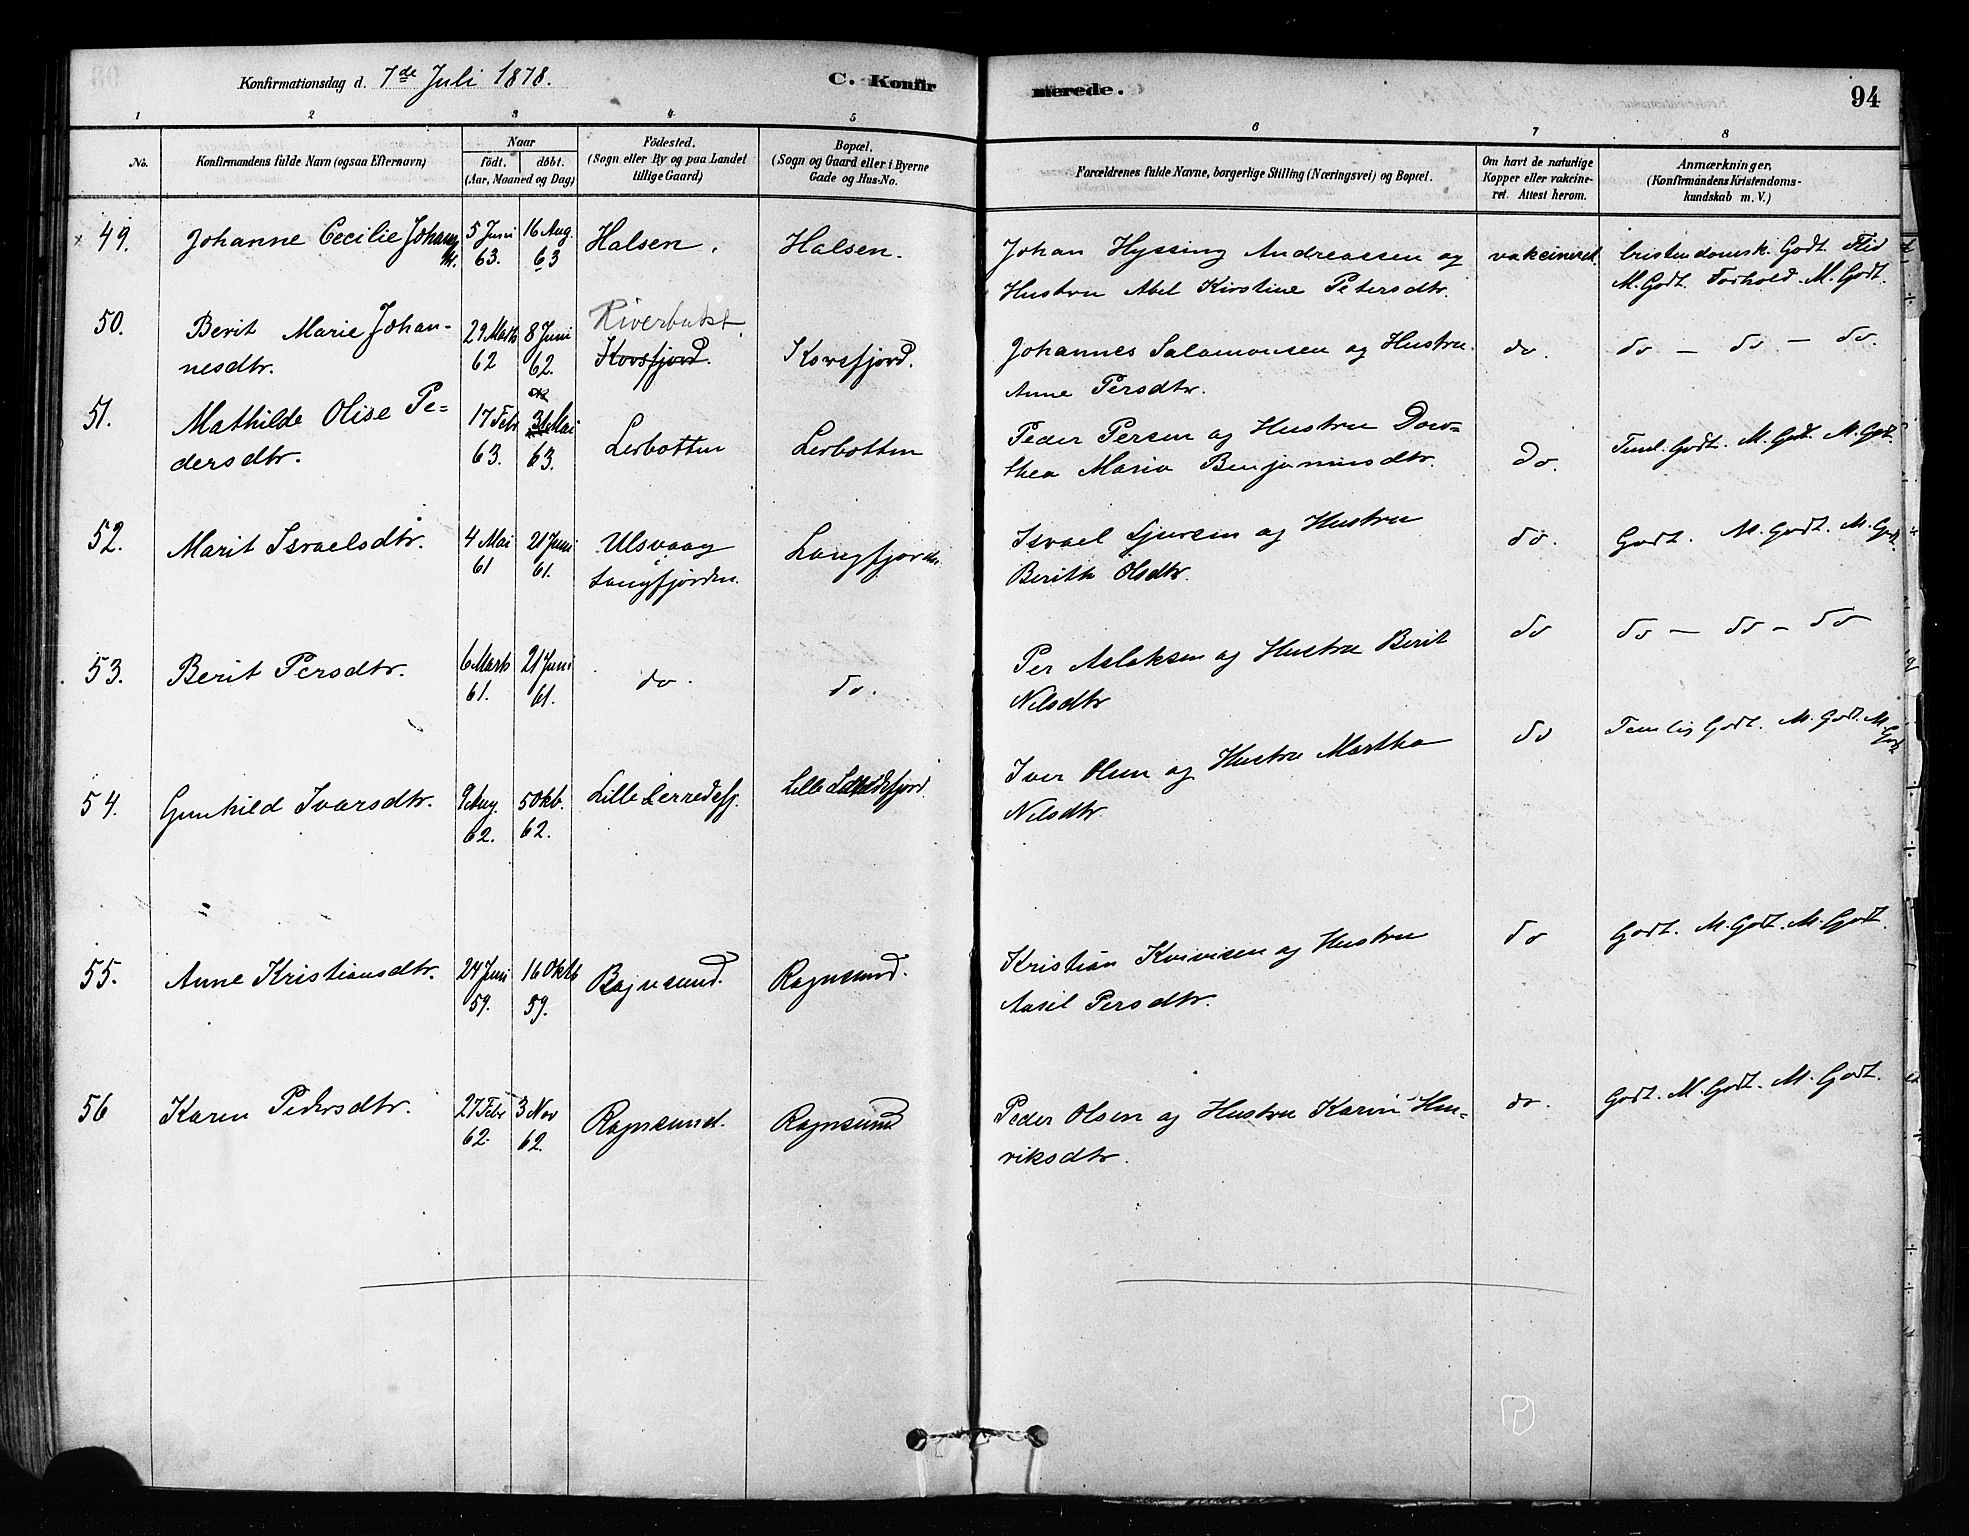 Konfirmationsdag d. 7de Juli 1878.
C. Konfirmerede.
94
1 2 3 4 5 6 7 8
No.
Konfirmandens fulde Navn (ogsaa Efternavn)
Naar
født. døbt.
(Aar, Maaned og Dag)
Fødested.
(Sogn eller By og paa Landet
tillige Gaard)
Bopæl.
(Sogn og Gaard eller i Byerne
Gade og Hus-No.
Forældrenes fulde Navne, borgerlige Stilling (Næringsvei) og Bopæl.
Om havt de naturlige
Kopper eller vakcine-
ret. Attest herom.
Anmærkninger,
(Konfirmandens Kristendoms-
kundskab m. V.)
49. Johanne Cecilie Johans 5 Juni 16 Aug. Halsen. Halsen. Johan Hyssing Andreassen og vakcineret. Cristendomsk. Godt. Flid
63. 63 Hustru Abel Kirstine Petersdtr. M. Godt. Forhold. M. Godt.
50. Berit Marie Johan- 29 Marts 8 Juni Riverbukt Korsfjord. Johannes Salamonsen og Hustru do. do - do - do.
nesdtr. 62 62. Korsfjord. Anne Persdtr.
51. Mathilde Olise Pe- 17 Febr 31 Mai Lerbotten Lerbotten Peder Persen og Hustru Doro- do. Teml. Godt. M. Godt. M. Godt
dersdtr. 63. 63. thea Maria Benjaminsdtr.
52. Marit Israelsdtr. 4 Mai 21 Juni Ulsvaag Langfjorden Israel Sjursen og Hustru do. Godt. M. Godt. M. Godt.
61 61. Langfjorden. Berith Olsdtr.
53. Berit Persdtr. 6 Marts 21 Juni do. do. Per Aslaksen og Hustru Berit do do - do - do
61. 61. Nilsdtr
54. Gunhild Ivarsdtr. 9 Aug. 5 Okb. Lille Lerredsfj. Lille Iver Olsen og Hustru Martha do Temlig Godt. M. Godt. M. Godt.
62. 62. Nilsdtr.
55. Anne Kristiansdtr. 24 Juni 16 Oktb Rognsund. Rognsund. Kristian Kvivisen og Hustru do Godt. M. Godt. M. Godt.
59. 59. Aasil Persdtr.
56 Karen Pedersdtr. 27 Febr 3 Nov Rognsund. Rognsund Peder Olsen og Hustru Karin Hen- do. Godt. M. Godt. M. Godt.
62. 62. riksdtr.